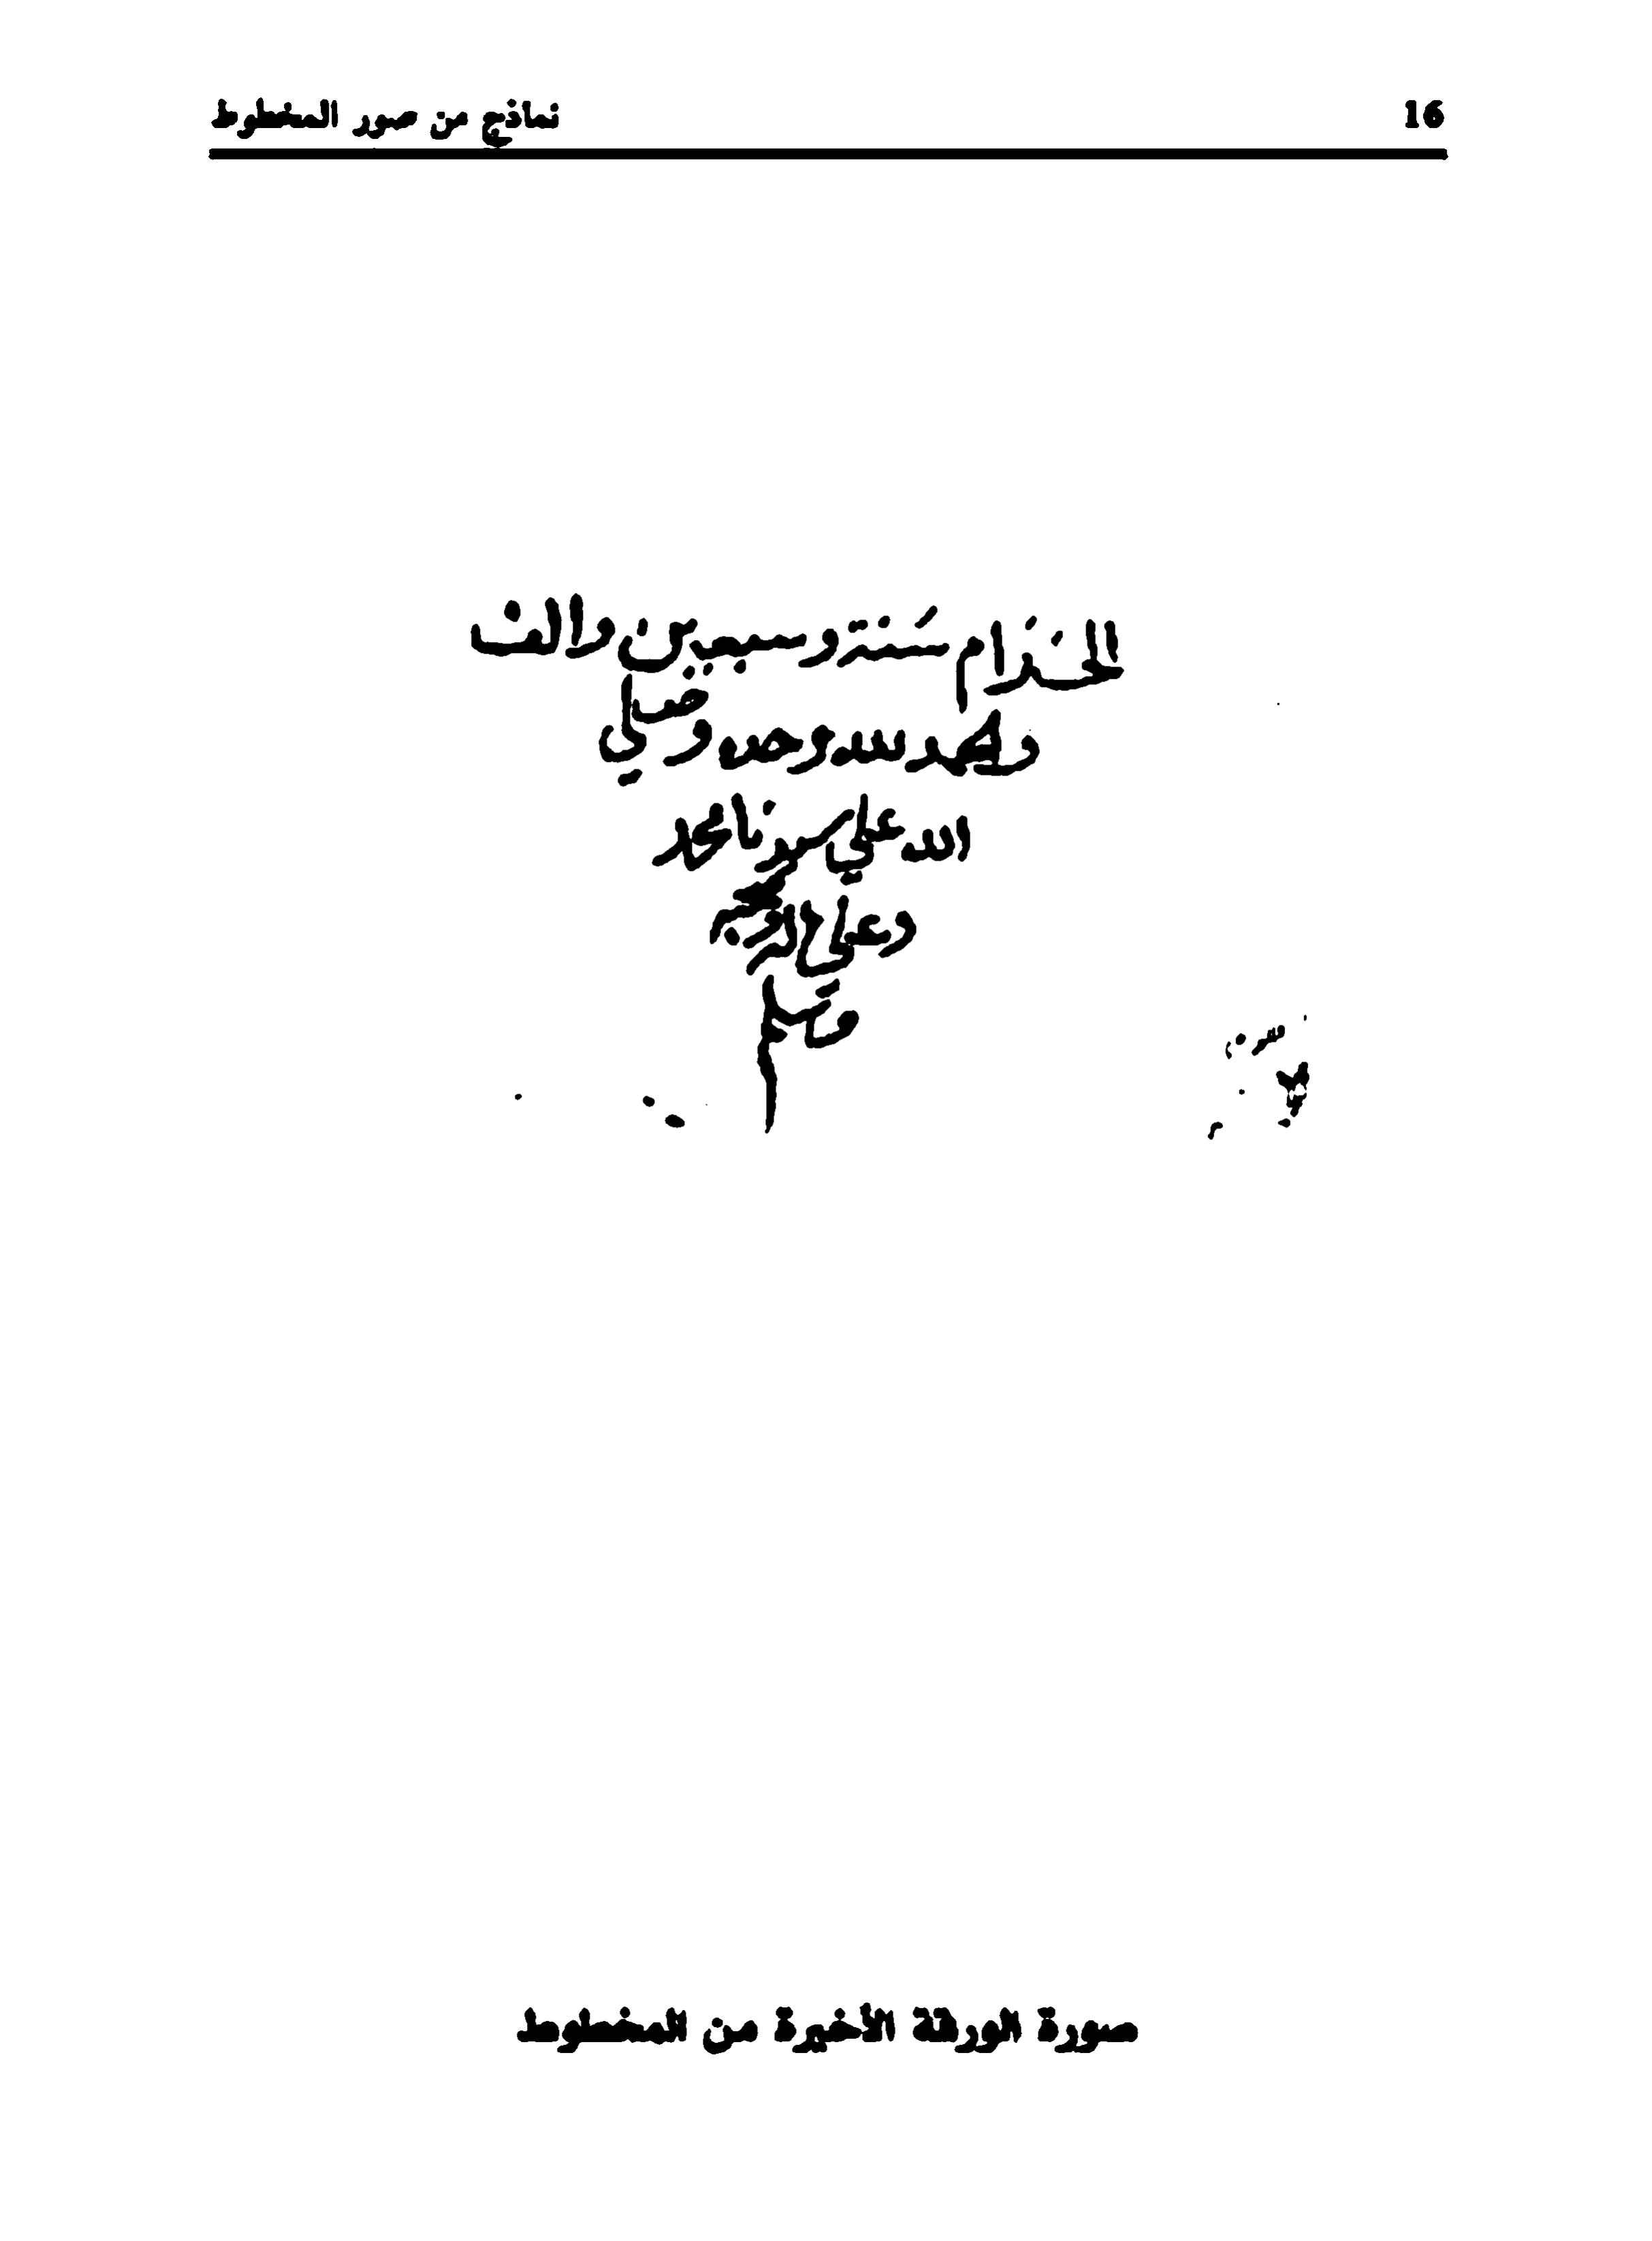 16
نماذج من صور المخطوط
الحرام سنة وسبعين والف
والحمد لله وحده وصلى
الله على سيدنا محمد
وعلى اله وصحبه
وسلم
صورة الورقة الأخيرة من المخطوط